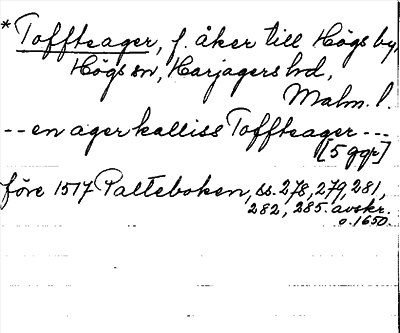 *Toffteager, f. åker till Högs by,
Högs sn, Harjagers hd,
Malm. l.
-- en ager kalliss Toffteager ---
[5 ggr]
före 1517 Palteboken, ss. 278, 279, 281,
282, 285. avskr.
o. 1650.